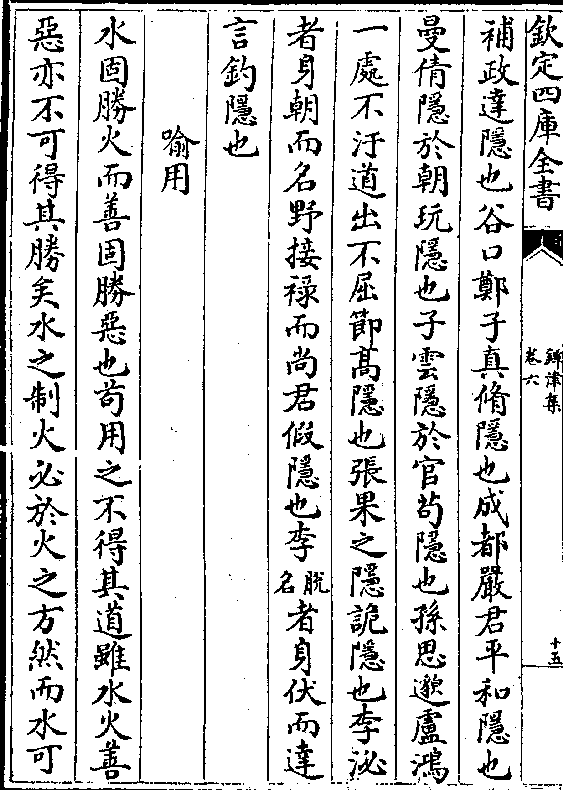 欽定四庫全書
鐔津集
卷六
十五
補政達隱也谷口鄭子真脩隱也成都嚴君平和隱也
曼倩隱於朝玩隱也子雲隱於官茍隱也孫思邈盧鴻
一處不汙道出不屈節髙隱也張果之隱詭隱也李泌
者身朝而名野接禄而尚君假隱也李脱名者身伏而達
言釣隱也
喻用
水固勝火而善固勝惡也茍用之不得其道雖水火善
惡亦不可得其勝矣水之制火必於火之方然而水可